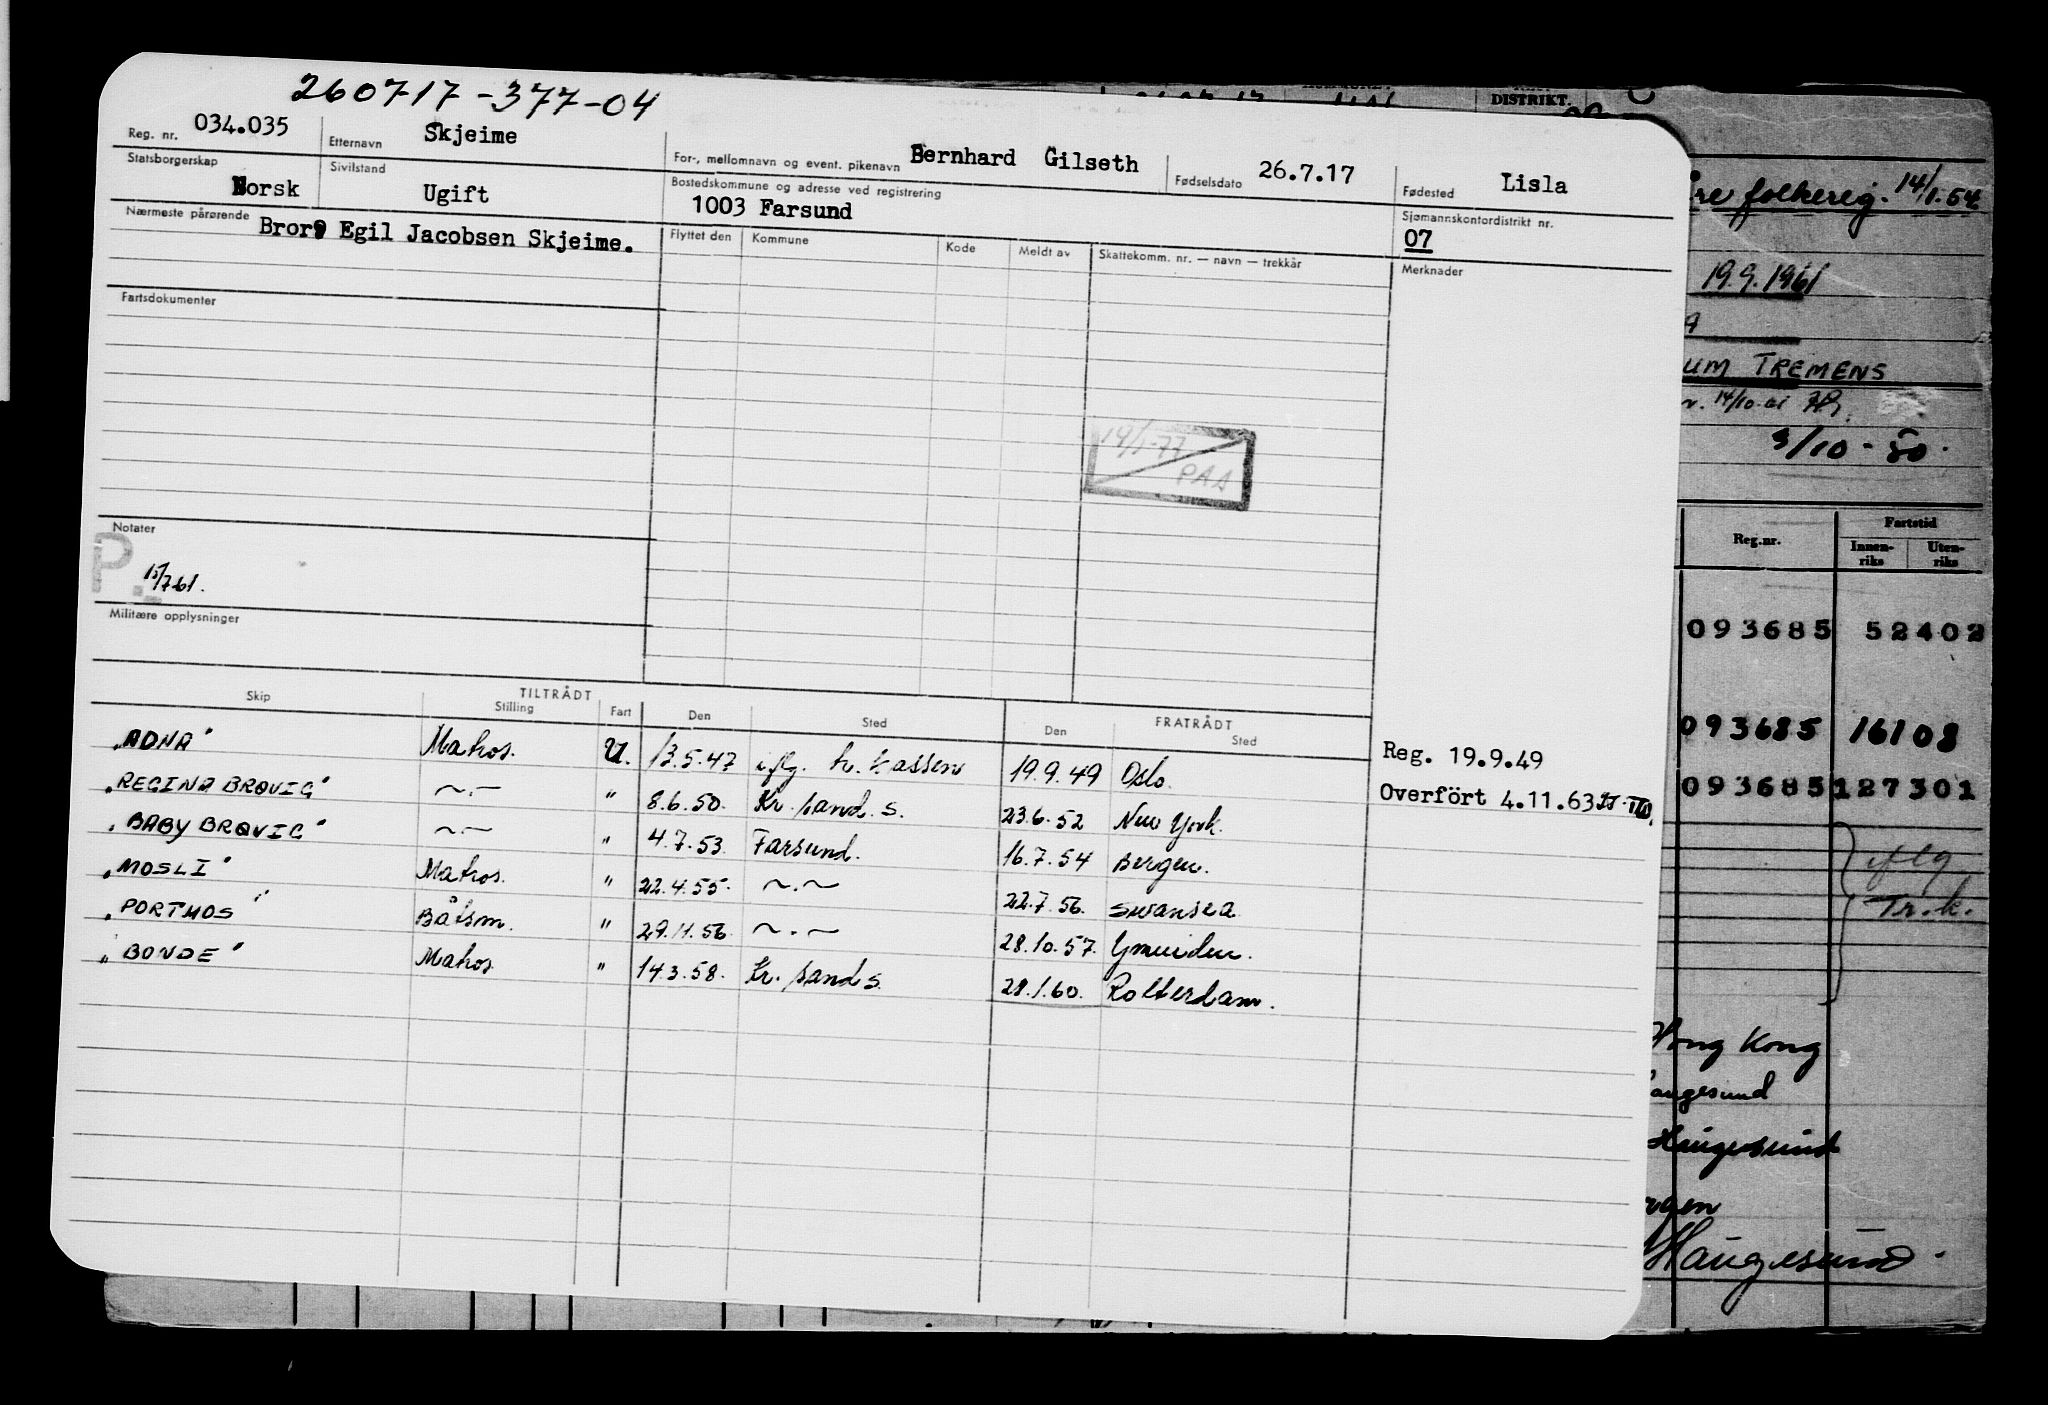 260717-377-04
Reg. nr. 034.035 Etternavn Skjeime For-, mellomnavn og event. pikenavn Bernhard Gilseth Fødselsdato 26.7.17 Fødested Lisla
Statsborgerskap Norsk Sivilstand Ugift Bostedskommune og adresse ved registrering 1003 Farsund Sjømannskontordistrikt nr. 07
Nærmeste pårørende Bror: Egil Jacobsen Skjeime.
Flyttet den Kommune Kode Meldt av Skattekomm. nr. — navn — trekkår Merknader
Fartsdokumenter
14/1-77
PAA
Notater
P.
15/7 61.
Militære opplysninger
TILTRÅDT FRATRÅDT
Skip Stilling Fart Den Sted Den Sted
"ADNA" Matros. U. 13.5.47 iflg. tr. kassen 19.9.49 Oslo. Reg. 19.9.49
"REGINA BRØVIG" ~.~ " 8.6.50. Kr. sand. S. 23.6.52 New York. Overfört 4.11.63
"BABY BRØVIG" ~.~ " 4.7.53. Farsund. 16.7.54 Bergen.
"MOSLI" Matros. " 22.4.55. ~.~ 22.7.56. Swansea
"PORTHOS" Båtsm. " 29.11.56. ~.~ 28.10.57. Ymuiden.
"BONDE" Matros " 14.3.58. Kr. sand S. 28.1.60. Rotterdam.
DISTRIKT.
folkereg. 14/1.54
19.9.1961
UM TREMENS
14/10-61
3/10-50.
Reg.nr. Fartstid
Innenriks Utenriks
093685 52402
093685 16108
093685 127301
iflg
Tr.k.
Hong Kong
Haugesund
Haugesund
Haugesund.